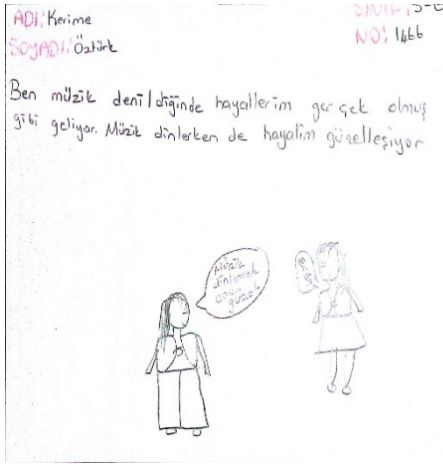 ADI: Kerime
SINIF: 5-
SOYADI: Öztürk
NO: 1466
Ben müzik denildiğinde hayallerim gerçek olmuş
gibi geliyor. Müzik dinlerken de hayatim güzelleşiyor
Müzik
dinlemek
çok
güzel